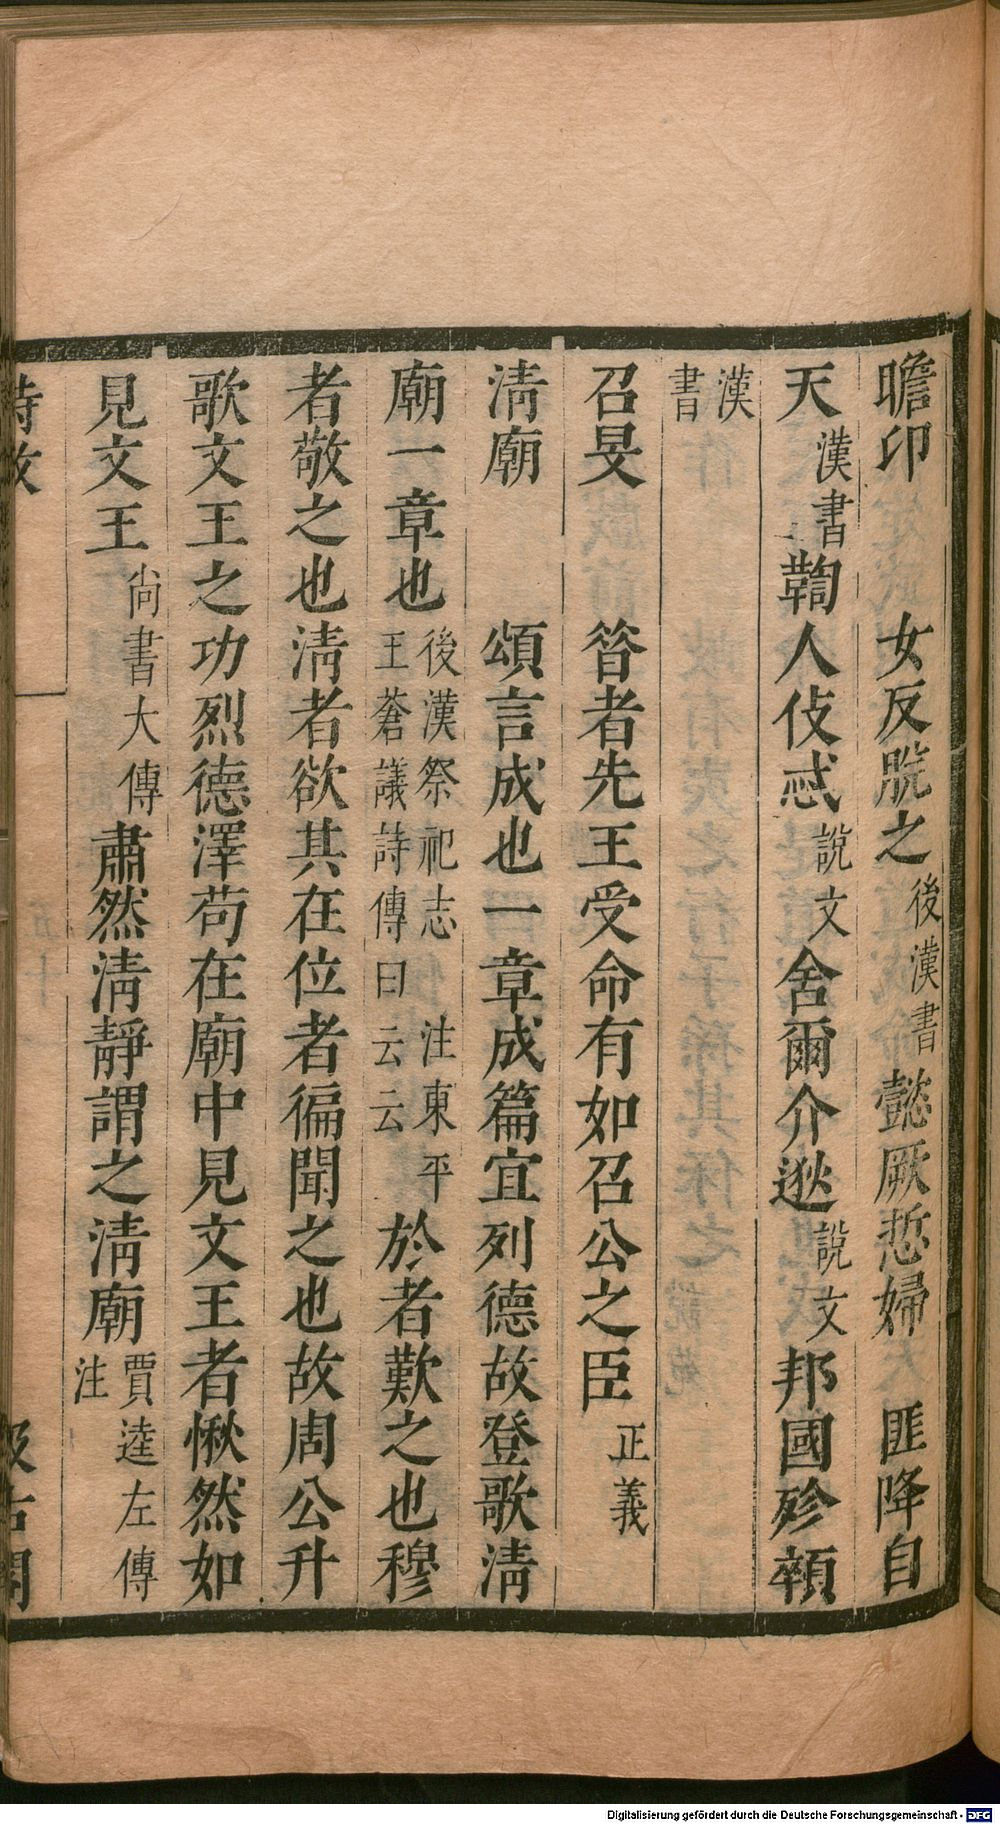 瞻卬　女反脫之後漢書懿厥悊婦　匪降自
天漢書鞫人伎忒說文舍爾介逖說文邦國殄顇
漢書
召旻　昝者先王受命有如召公之臣正義
淸廟　頌言成也一章成篇宜列德故登歌淸
廟一章也後漢祭祀志注東平王蒼議詩傳曰云云於者歎之也穆
者敬之也淸者欲其在位者徧聞之也故周公升
歌文王之功烈德澤苟在廟中見文王者愀然如
見文王尙書大傳肅然淸靜謂之淸廟賈逵左傳注
詩攷
汲古閣
Digitalisierung gefördert durch die Deutsche Forschungsgemeinschaft - DFG